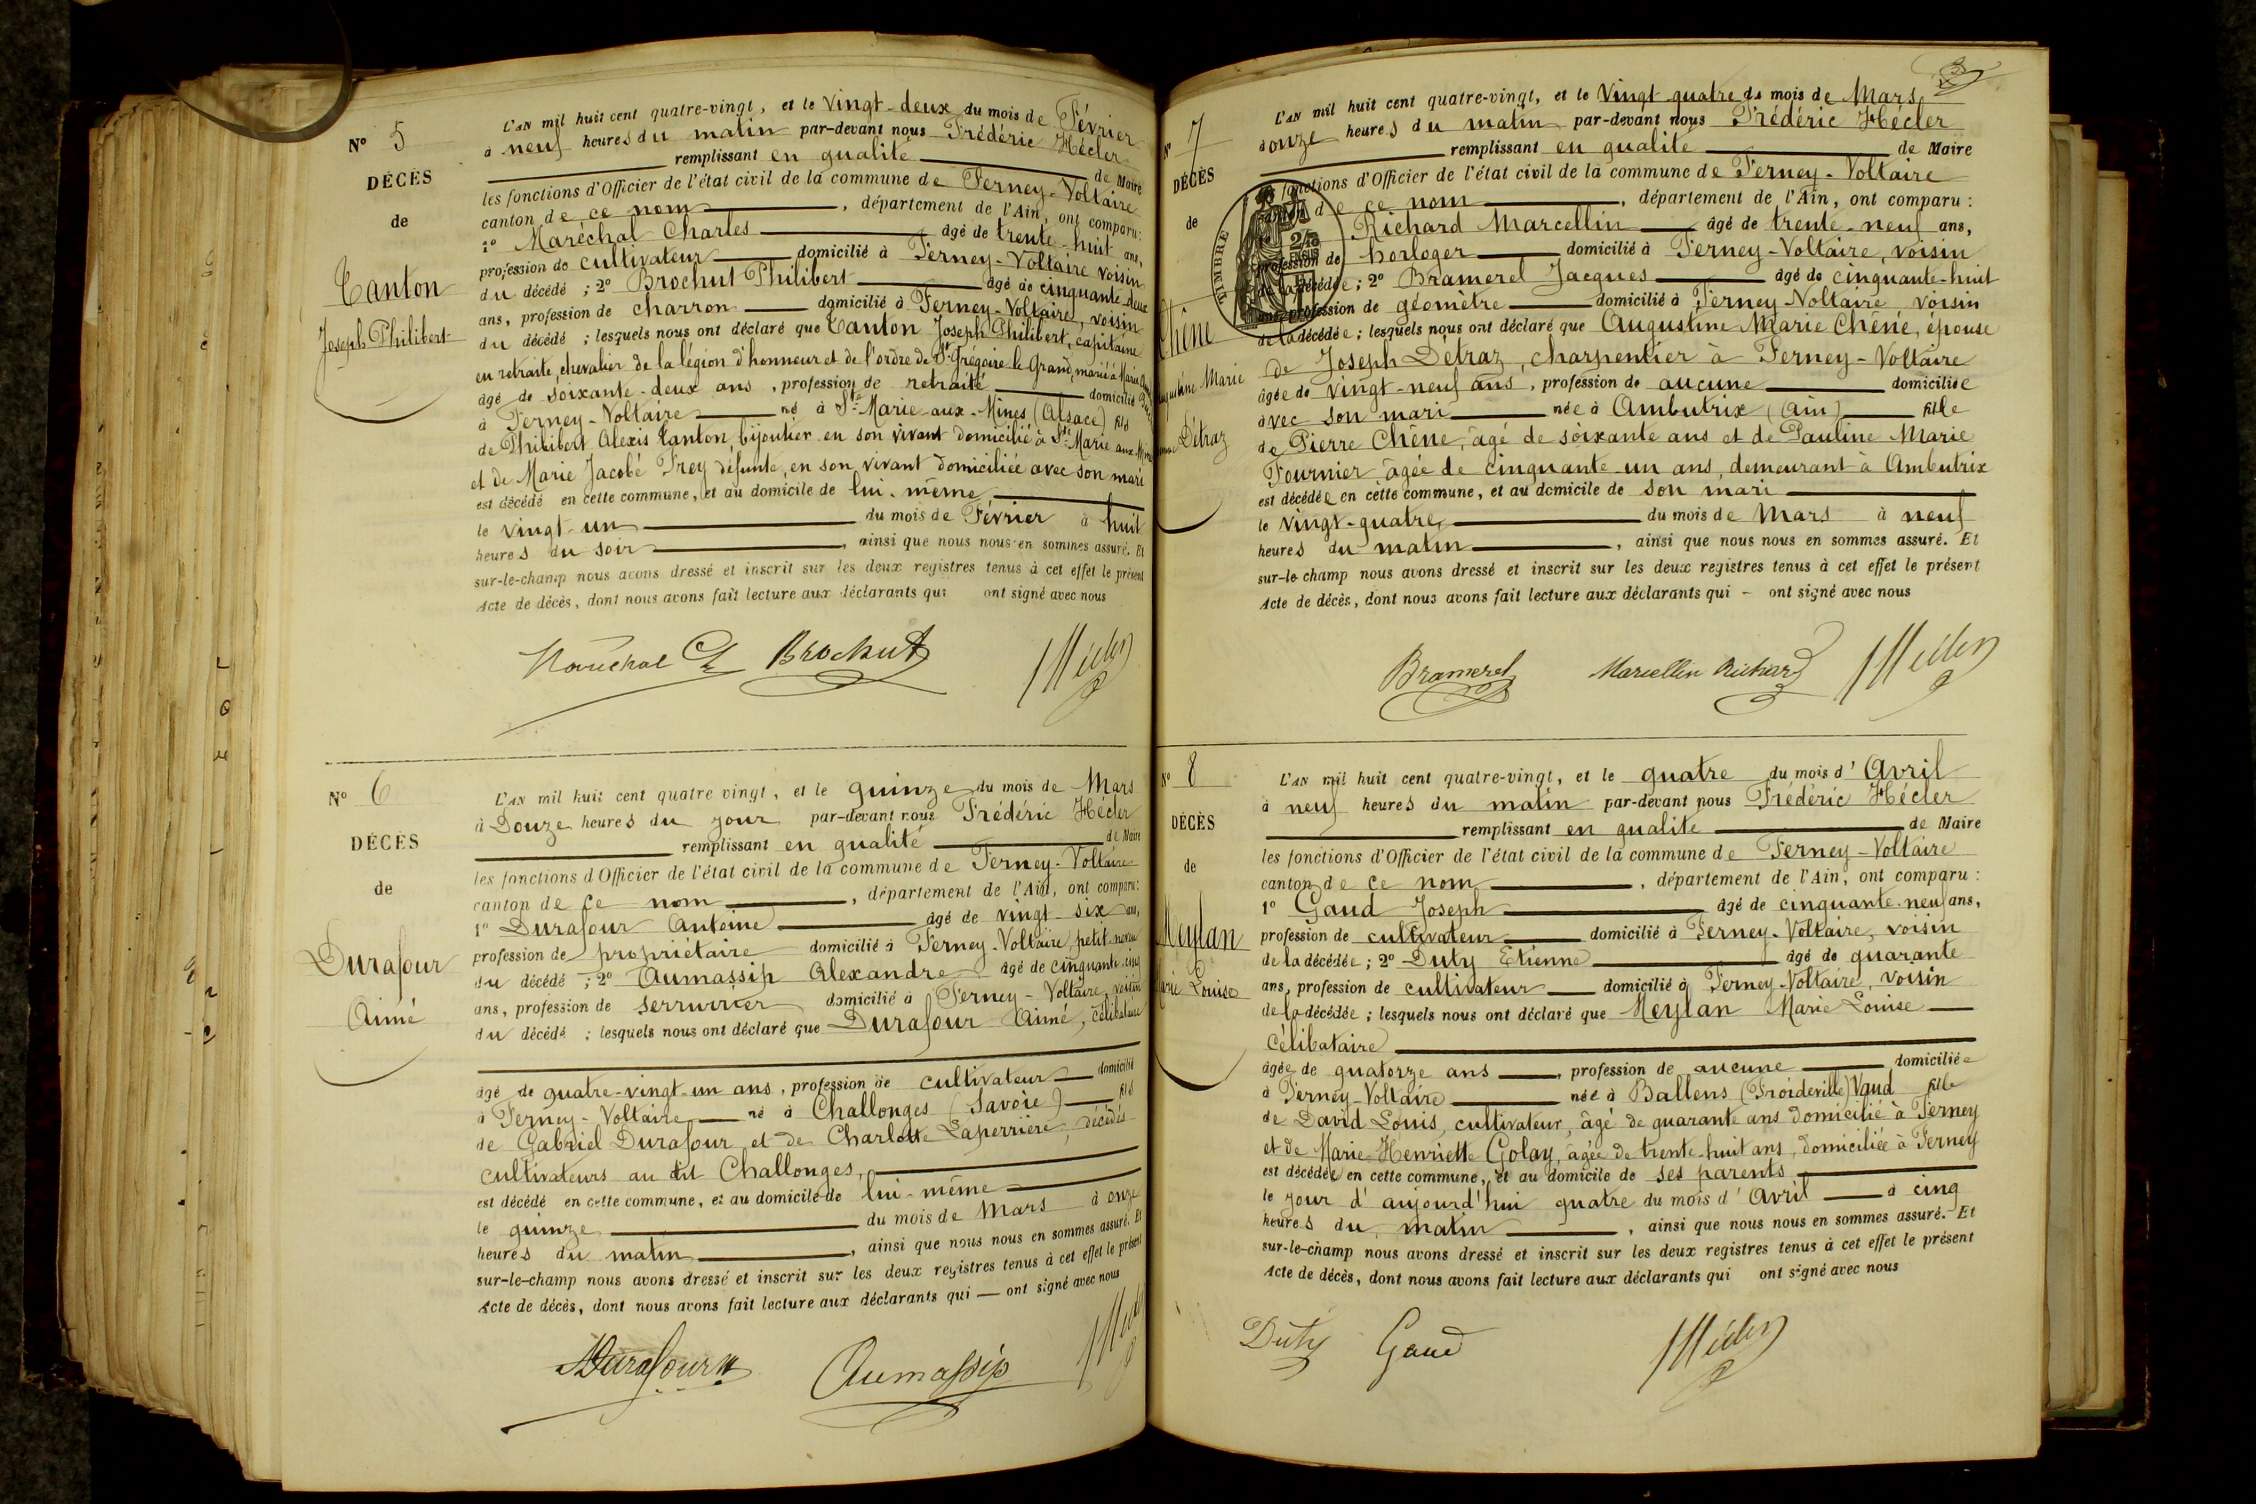 N° 5
DÉCÈS
de
Canton
Joseph Philibert
L'AN mil huit cent quatre-vingt, et le Vingt-deux du mois de Février
à neuf heures du matin par-devant nous Frédéric Hécler
remplissant en qualité de Maire
les fonctions d'Officier de l'état civil de la commune de Ferney-Voltaire
canton de ce nom, département de l'Ain, ont comparu:
1° Maréchal Charles âgé de trente-huit ans,
profession de cultivateur domicilié à Ferney-Voltaire voisin
du décédé ; 2° Brochut Philibert âgé de cinquante-deux
ans, profession de charron domicilié à Ferney-Voltaire, voisin
du décédé ; lesquels nous ont déclaré que Canton Joseph Philibert, capitaine
en retraite, chevalier de la légion d'honneur et de l'ordre de St Grégoire le Grand, marié à Marie
âgé de soixante-deux ans, profession de retraité domicilié
à Ferney-Voltaire né à Ste Marie-aux-Mines (Alsace) fils
de Philibert Alexis Canton, bijoutier en son vivant domicilié à Ste Marie aux Mines
et de Marie Jacobé Frey défunte, en son vivant domiciliée avec son mari
est décédé en cette commune, et au domicile de lui-même
le vingt-un du mois de Février à huit
heures du soir, ainsi que nous nous en sommes assuré. Et
sur-le-champ nous avons dressé et inscrit sur les deux registres tenus à cet effet le présent
Acte de décès, dont nous avons fait lecture aux déclarants qui ont signé avec nous
Maréchal Ch Brochut Hécler
N° 6
DÉCÈS
de
Durafour
Aimé
L'AN mil huit cent quatre vingt, et le quinze du mois de Mars
à Douze heures du jour par-devant nous Frédéric Hécler
remplissant en qualité de Maire
les fonctions d'Officier de l'état civil de la commune de Ferney-Voltaire
canton de ce nom, département de l'Ain, ont comparu:
1° Durafour Antoine âgé de vingt-six ans,
profession de propriétaire domicilié à Ferney-Voltaire, petit-neveu
du décédé ; 2° Aumassip Alexandre âgé de cinquante-cinq
ans, profession de serrurier domicilié à Ferney-Voltaire, voisin
du décédé ; lesquels nous ont déclaré que Durafour Aimé, célibataire
âgé de quatre-vingt-un ans, profession de cultivateur domicilié
à Ferney-Voltaire né à Challonges (Savoie) fils
de Gabriel Durafour et de Charlotte Laperrière, décédés
cultivateurs au dit Challonges,
est décédé en cette commune, et au domicile de lui-même
le quinze du mois de Mars à onze
heures du matin, ainsi que nous nous en sommes assuré. Et
sur-le-champ nous avons dressé et inscrit sur les deux registres tenus à cet effet le présent
Acte de décès, dont nous avons fait lecture aux déclarants qui — ont signé avec nous
ADurafour Aumassip Hécler
N° 7
DÉCÈS
de
Chêne
Augustine Marie
femme Détraz
TIMBRE
L'AN mil huit cent quatre-vingt, et le Vingt-quatre du mois de Mars
à onze heures du matin par-devant nous Frédéric Hécler
remplissant en qualité de Maire
les fonctions d'Officier de l'état civil de la commune de Ferney-Voltaire
canton de ce nom, département de l'Ain, ont comparu :
Richard Marcellin âgé de trente-neuf ans,
profession de horloger domicilié à Ferney-Voltaire, voisin
de la décédée ; 2° Bramerel Jacques âgé de cinquante-huit
ans, profession de géomètre domicilié à Ferney-Voltaire voisin
de la décédée ; lesquels nous ont déclaré que Augustine Marie Chêne, épouse
de Joseph Détraz, charpentier à Ferney-Voltaire
âgée de vingt-neuf ans, profession de aucune domiciliée
avec son mari née à Ambutrix (Ain) fille
de Pierre Chêne, âgé de soixante ans et de Pauline Marie
Fournier âgée de cinquante-un ans, demeurant à Ambutrix
est décédée en cette commune, et au domicile de son mari
le vingt-quatre du mois de Mars à neuf
heures du matin, ainsi que nous nous en sommes assuré. Et
sur-le-champ nous avons dressé et inscrit sur les deux registres tenus à cet effet le présent
Acte de décès, dont nous avons fait lecture aux déclarants qui - ont signé avec nous
Bramerel Marcellin Richard Hécler
N° 8
DÉCÈS
de
Meylan
Marie Louise
L'AN mil huit cent quatre-vingt, et le quatre du mois d'Avril
à neuf heures du matin par-devant nous Frédéric Hécler
remplissant en qualité de Maire
les fonctions d'Officier de l'état civil de la commune de Ferney-Voltaire
canton de ce nom, département de l'Ain, ont comparu :
1° Gaud Joseph âgé de cinquante-neuf ans,
profession de cultivateur domicilié à Ferney-Voltaire, voisin
de la décédée ; 2° Duty Etienne âgé de quarante
ans, profession de cultivateur domicilié à Ferney-Voltaire, voisin
de la décédée ; lesquels nous ont déclaré que Meylan Marie Louise
célibataire
âgée de quatorze ans, profession de aucune domiciliée
à Ferney-Voltaire née à Ballens (Froideville) Vaud fille
de David Louis, cultivateur, âgé de quarante ans domicilié à Ferney
et de Marie-Henriette Golay, âgée de trente-huit ans, domiciliée à Ferney
est décédée en cette commune, et au domicile de ses parents
le jour d'aujourd'hui quatre du mois d'Avril à cinq
heures du matin, ainsi que nous nous en sommes assuré. Et
sur-le-champ nous avons dressé et inscrit sur les deux registres tenus à cet effet le présent
Acte de décès, dont nous avons fait lecture aux déclarants qui ont signé avec nous
Duty Gaud Hécler